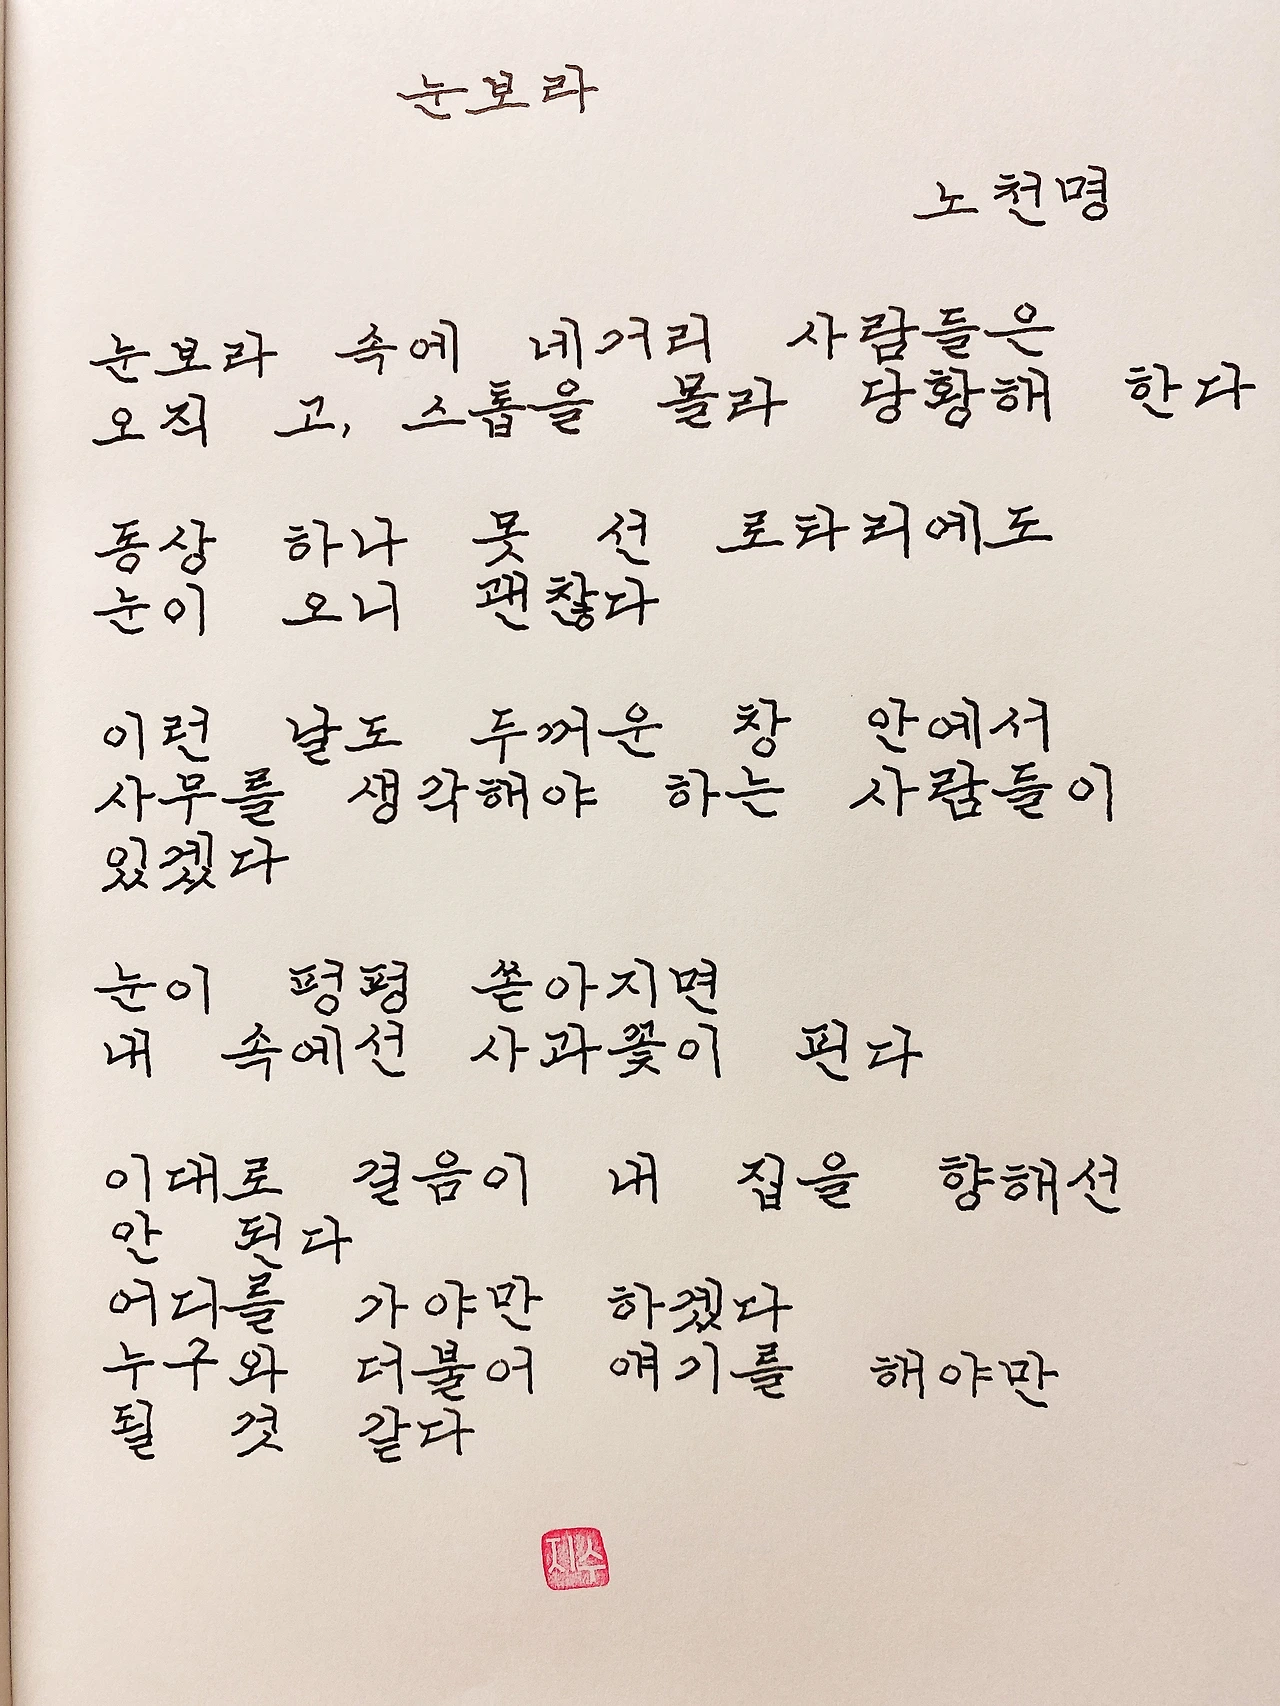 눈보라
노천명
눈보라 속에 네거리 사람들은
오직 고, 스톱을 몰라 당황해 한다
동상 하나 못 선 로타리에도
눈이 오니 괜찮다
이런 날도 두꺼운 창 안에서
사무를 생각해야 하는 사람들이
있겠다
눈이 펑펑 쏟아지면
내 속에선 사과꽃이 핀다
이대로 걸음이 내 집을 향해선
안 된다
어디를 가야만 하겠다
누구와 더불어 얘기를 해야만
될 것 같다
제수